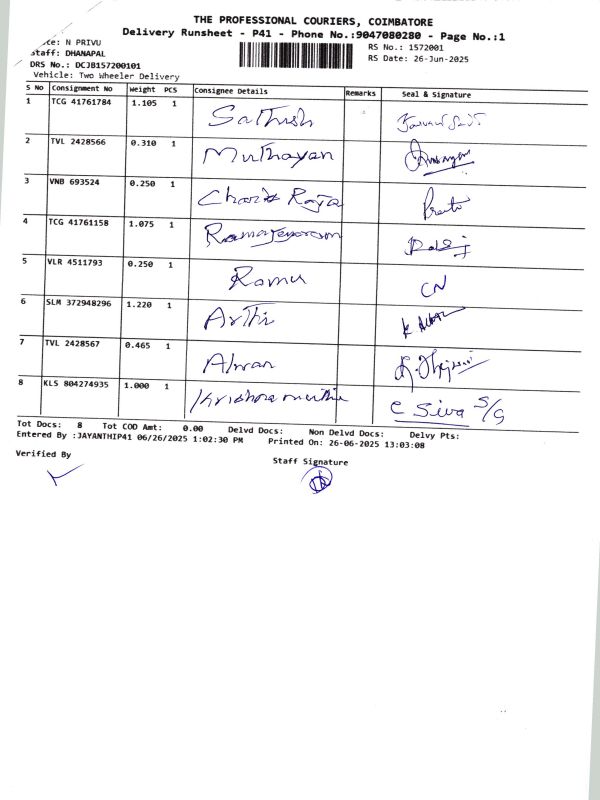 THE PROFESSIONAL COURIERS, COIMBATORE
Delivery Runsheet - P41 - Phone No.:9047080280 - Page No.:1
N PRIVU
Staff: DHANAPAL
DRS No.: DCJB157200101
RS No.: 1572001
RS Date: 26-Jun-2025
Vehicle: Two Wheeler Delivery
S No Consignment No Weight PCS Consignee Details Remarks Seal & Signature
1 TCG 41761784 1.105 1 Sathish
2 TVL 2428566 0.310 1 Muthayan
3 VNB 693524 0.250 1 Raja
4 TCG 41761158 1.075 1
5 VLR 4511793 0.250 1 Ramu CN
6 SLM 372948296 1.220 1 Arthi
7 TVL 2428567 0.465 1
8 KLS 804274935 1.000 1 C Siva S/G
Tot Docs: 8 Tot COD Amt: 0.00 Delvd Docs: Non Delvd Docs: Delvy Pts:
Entered By :JAYANTHIP41 06/26/2025 1:02:30 PM Printed On: 26-06-2025 13:03:08
Verified By
Staff Signature